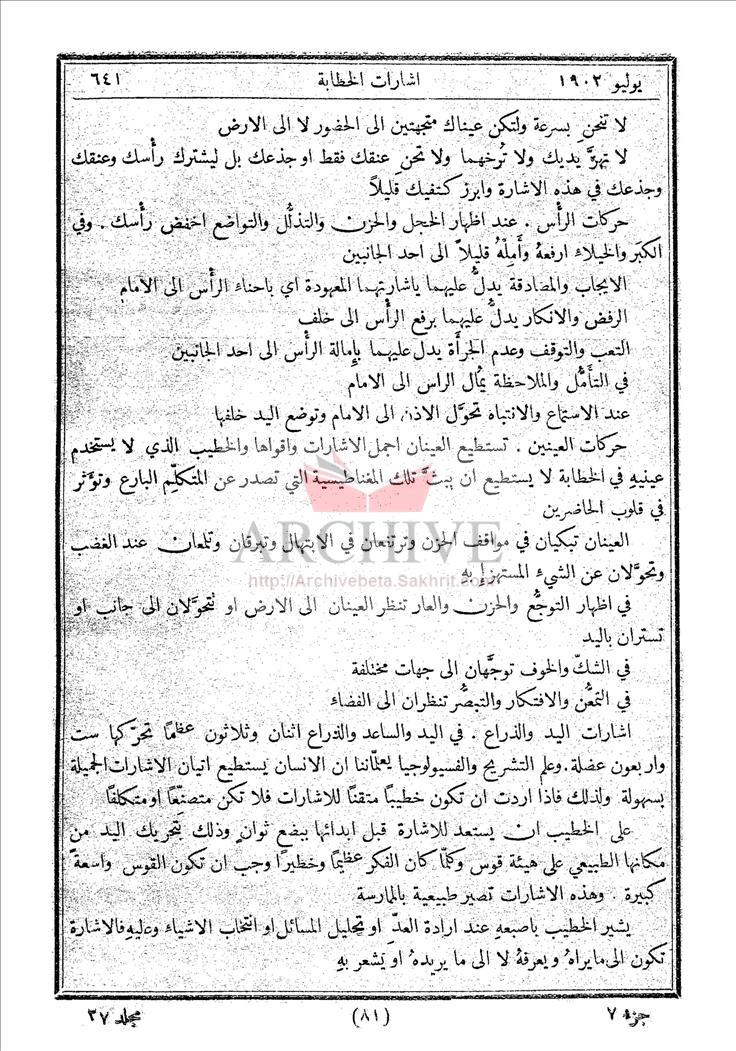 يوليو ١٩٠٢
اشارات الخطابة
٦٤١
لا تنحنِ بسرعة ولتكن عيناك متجهتين الى الحضور لا الى الارض
لا تهزَّ يديك ولا تُرخهما ولا تحنِ عنقك فقط او جذعك بل ليشترك رأسك وعنقك
وجذعك في هذه الاشارة وابرز كتفيك قليلاً
حركات الرأس . عند اظهار الخجل والحزن والتذلُّل والتواضع اخفض رأسك . وفي
الكبَر والخيلاء ارفعهُ وأَمِلْهُ قليلاً الى احد الجانبين
الايجاب والمصادقة يدلُّ عليهما باشارتهما المعهودة اي باحناء الرأس الى الامام
الرفض والانكار يدلُّ عليهما برفع الرأس الى خلف
التعب والتوقف وعدم الجرأة يدل عليهما بإمالة الرأس الى احد الجانبين
في التأمُّل والملاحظة يُمال الراس الى الامام
عند الاستماع والانتباه تحوَّل الاذن الى الامام وتوضع اليد خلفها
حركات العينين . تستطيع العينان اجمل الاشارات واقواها والخطيب الذي لا يستخدم
عينيهِ في الخطابة لا يستطيع ان يبثَّ تلك المغناطيسية التي تصدر عن المتكلِّم البارع وتؤثر
في قلوب الحاضرين
ARCHIVE
العينان تبكيان في مواقف الحزن وترتفعان في الابتهال وتبرقان وتلمعان عند الغضب
وتحوَّلان عن الشيء المستهزإِ بهِ
http://Archivebeta.Sakhrit.com
في اظهار التوجُّع والحزن والعار تنظر العينان الى الارض او تتحوَّلان الى جانب او
تستران باليد
في الشكّ والخوف توجَّهان الى جهات مختلفة
في التمعُّن والافتكار والتبصُّر تنظران الى الفضاء
اشارات اليد والذراع . في اليد والساعد والذراع اثنان وثلاثون عظمًا تحرّكها ست
واربعون عضلة . وعلم التشريح والفسيولوجيا يعلّماننا ان الانسان يستطيع اتيان الاشارات الجميلة
بسهولة ولذلك فاذا اردت ان تكون خطيبًا متقنًا للاشارات فلا تكن متصنّعًا او متكلفًا
على الخطيب ان يستعد للاشارة قبل ابدائها ببضع ثوانٍ وذلك بتحريك اليد من
مكانها الطبيعي على هيئة قوس وكلَّما كان الفكر عظيمًا وخطيرًا وجب ان تكون القوس واسعة
كبيرة . وهذه الاشارات تصير طبيعية بالممارسة
يشير الخطيب باصبعهِ عند ارادة العدّ او تحليل المسائل او انتخاب الاشياء وعليهِ فالاشارة
تكون الى ما يراهُ ويعرفهُ لا الى ما يريدهُ او يشعر بهِ
جزء ٧
(٨١)
مجلد ٢٧